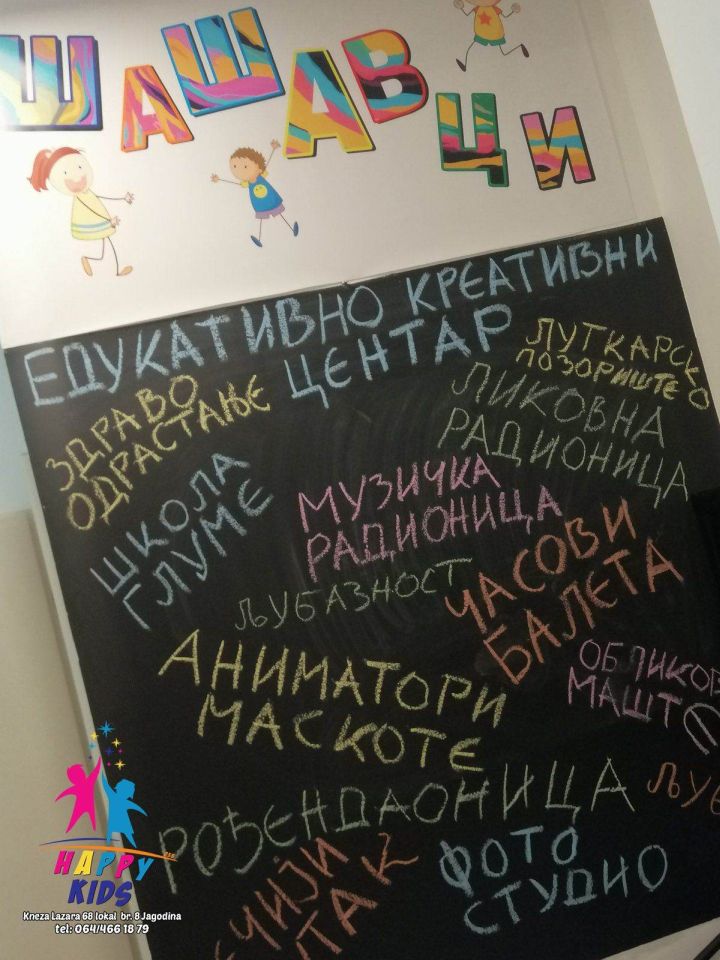 ШАШАВЦИ
ЕДУКАТИВНО КРЕАТИВНИ
ЦЕНТАР
ЛУТКАРСКО
ПОЗОРИШТЕ
ЗДРАВО
ОДРАСТАЊЕ
ЛИКОВНА
РАДИОНИЦА
ШКОЛА
ГЛУМЕ
МУЗИЧКА
РАДИОНИЦА
ЧАСОВИ
БАЛЕТА
ЉУБАЗНОСТ
АНИМАТОРИ
МАСКОТЕ
ОБЛИКОВ
МАШТ
РОЂЕНДАОНИЦА
ЉУБ
ФОТО
СТУДИО
HAPPY
KIDS
Kneza Lazara 68 lokal br. 8 Jagodina
tel: 064/466 18 79